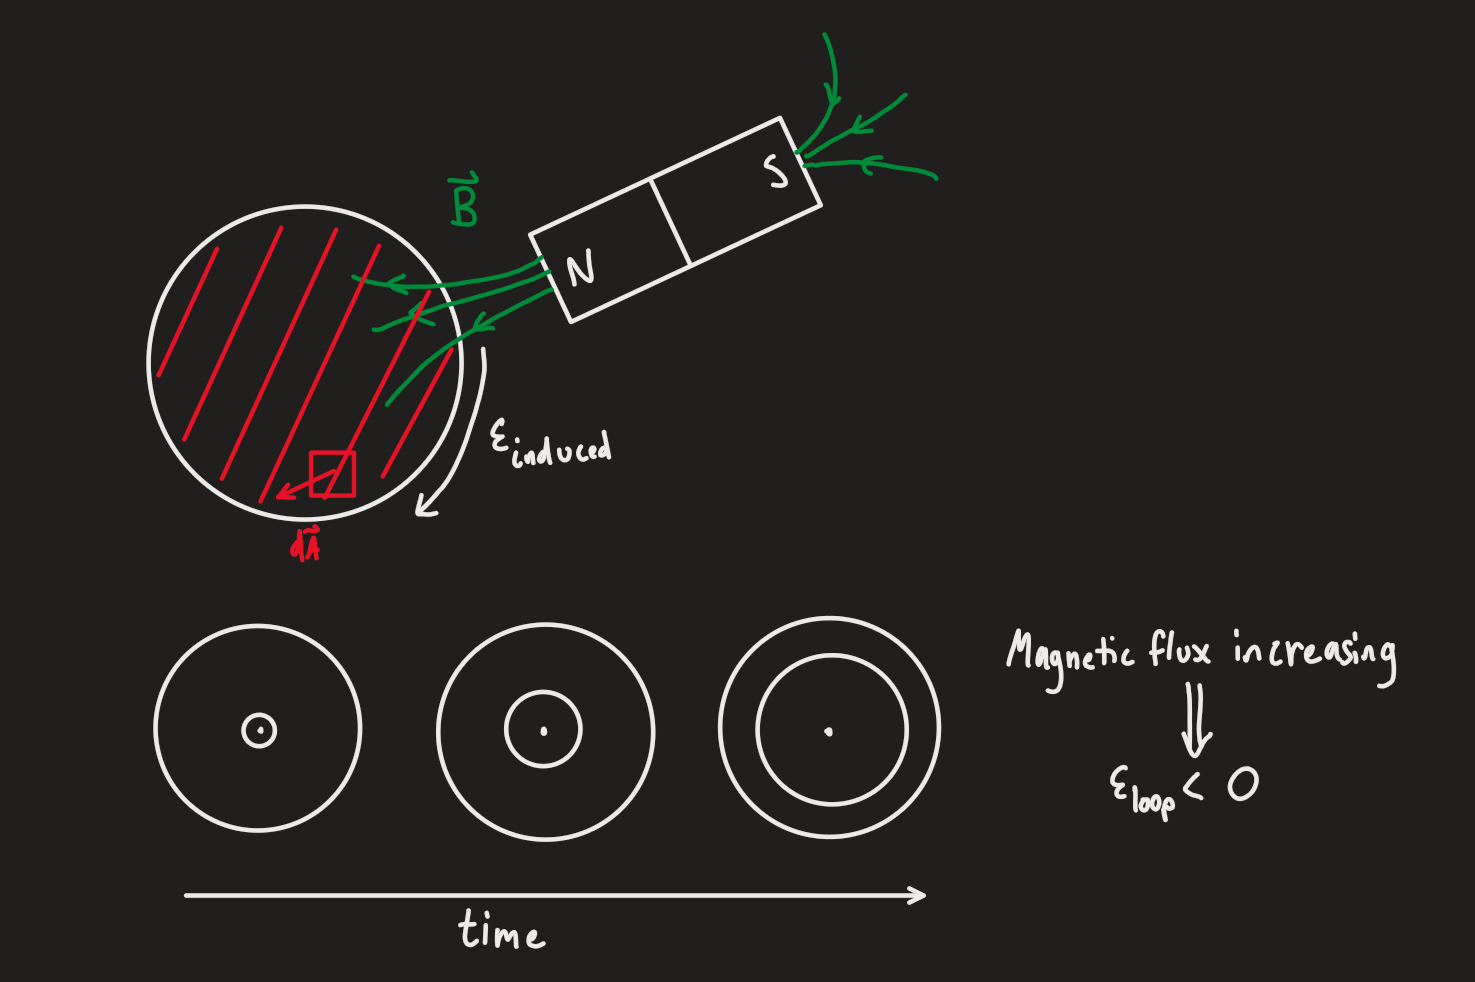 S
B⃗
N
ε induced
dA⃗
Magnetic flux increasing
⇓
ε loop < 0
time